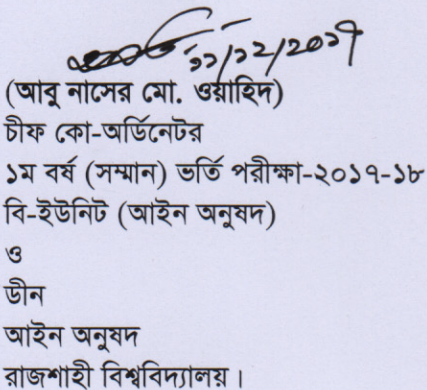 ১১/১২/২০১৭
(আবু নাসের মো. ওয়াহিদ)
চীফ কো-অর্ডিনেটর
১ম বর্ষ (সম্মান) ভর্তি পরীক্ষা-২০১৭-১৮
বি-ইউনিট (আইন অনুষদ)
ও
ডীন
আইন অনুষদ
রাজশাহী বিশ্ববিদ্যালয়।